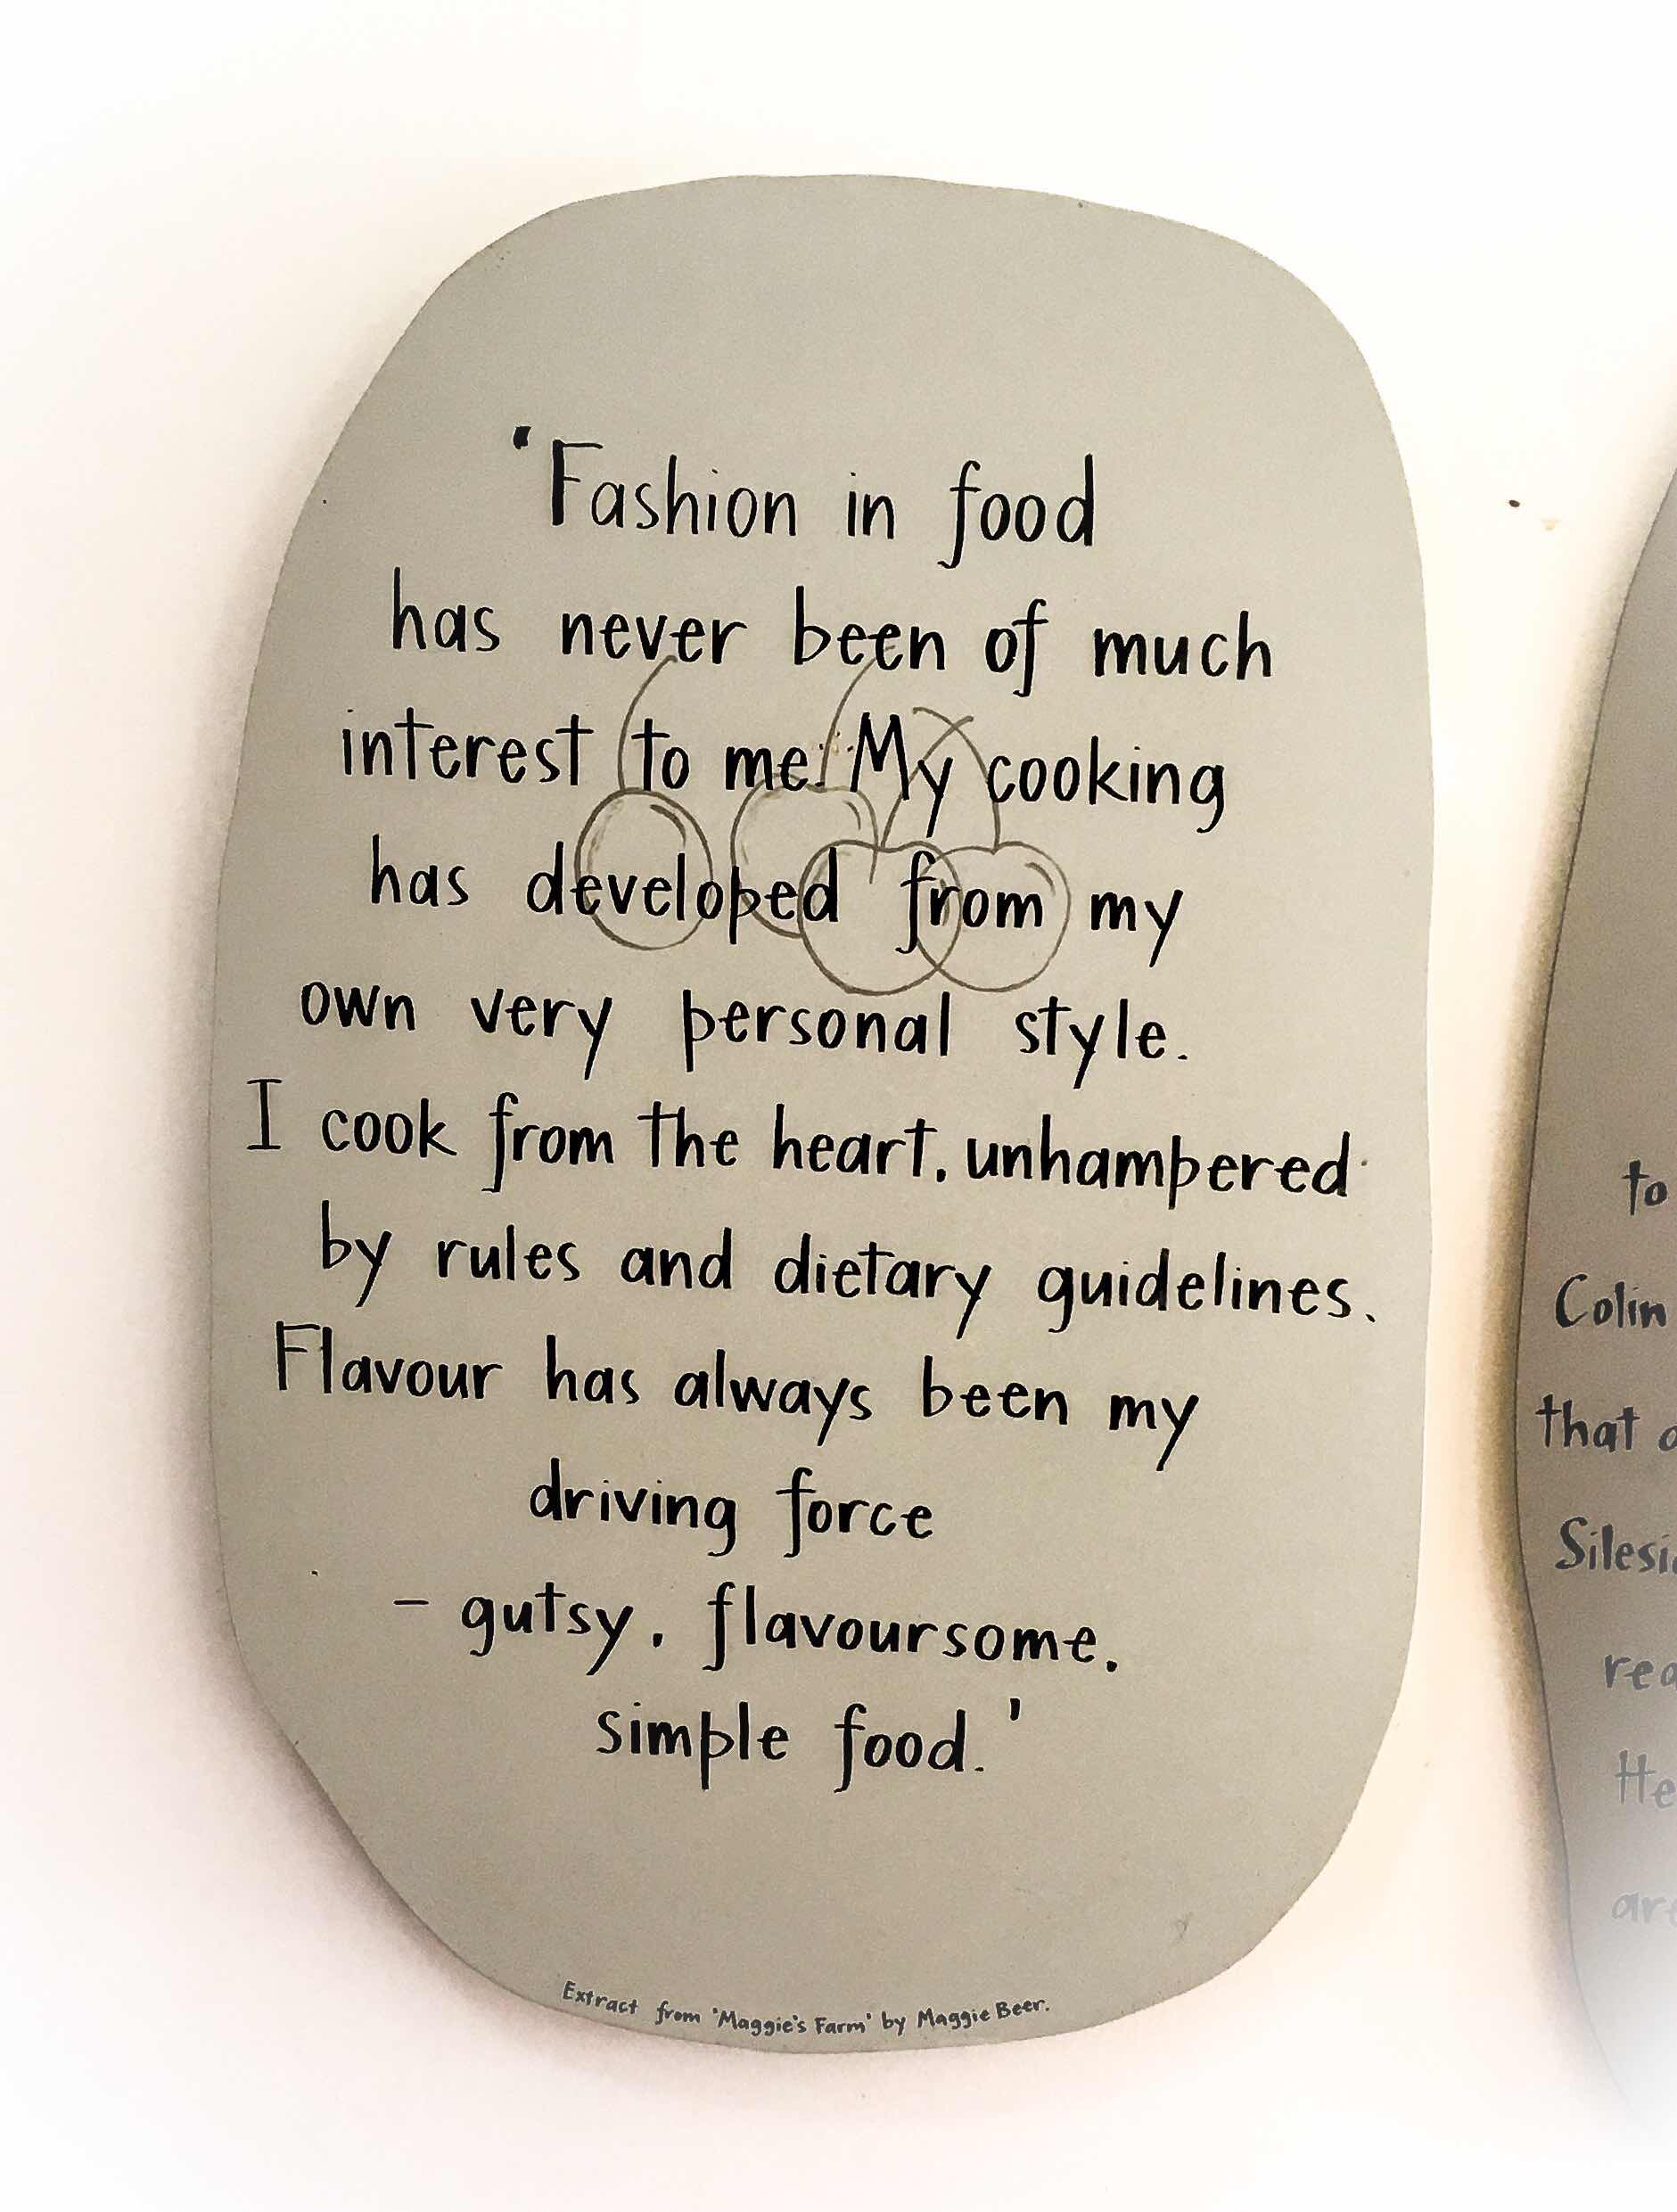 'Fashion in food
has never been of much
interest to me. My cooking
has developed from my
own very personal style.
I cook from the heart, unhampered
by rules and dietary guidelines.
Flavour has always been my
driving force
- gutsy, flavoursome,
simple food.'
Extract from 'Maggie's Farm' by Maggie Beer.
to
Colin
that